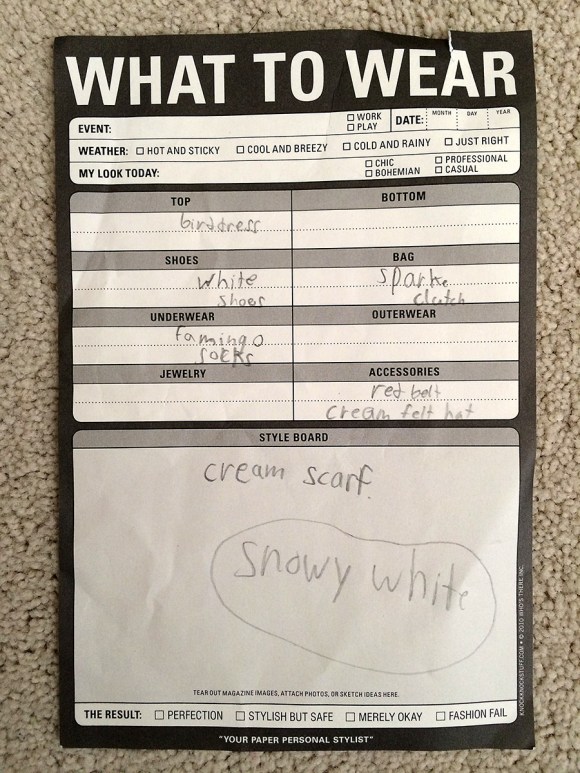 WHAT TO WEAR
EVENT: □ WORK □ PLAY DATE: MONTH DAY YEAR
WEATHER: □ HOT AND STICKY □ COOL AND BREEZY □ COLD AND RAINY □ JUST RIGHT
MY LOOK TODAY: □ CHIC □ BOHEMIAN □ PROFESSIONAL □ CASUAL
TOP
birddress
BOTTOM
SHOES
white
shoes
BAG
spark
clutch
UNDERWEAR
famingo
socks
OUTERWEAR
JEWELRY
ACCESSORIES
red belt
cream felt hat
STYLE BOARD
cream scarf.
Snowy white
TEAR OUT MAGAZINE IMAGES, ATTACH PHOTOS, OR SKETCH IDEAS HERE.
THE RESULT: □ PERFECTION □ STYLISH BUT SAFE □ MERELY OKAY □ FASHION FAIL
"YOUR PAPER PERSONAL STYLIST"
KNOCKKNOCKSTUFF.COM • © 2010 WHO'S THERE INC.